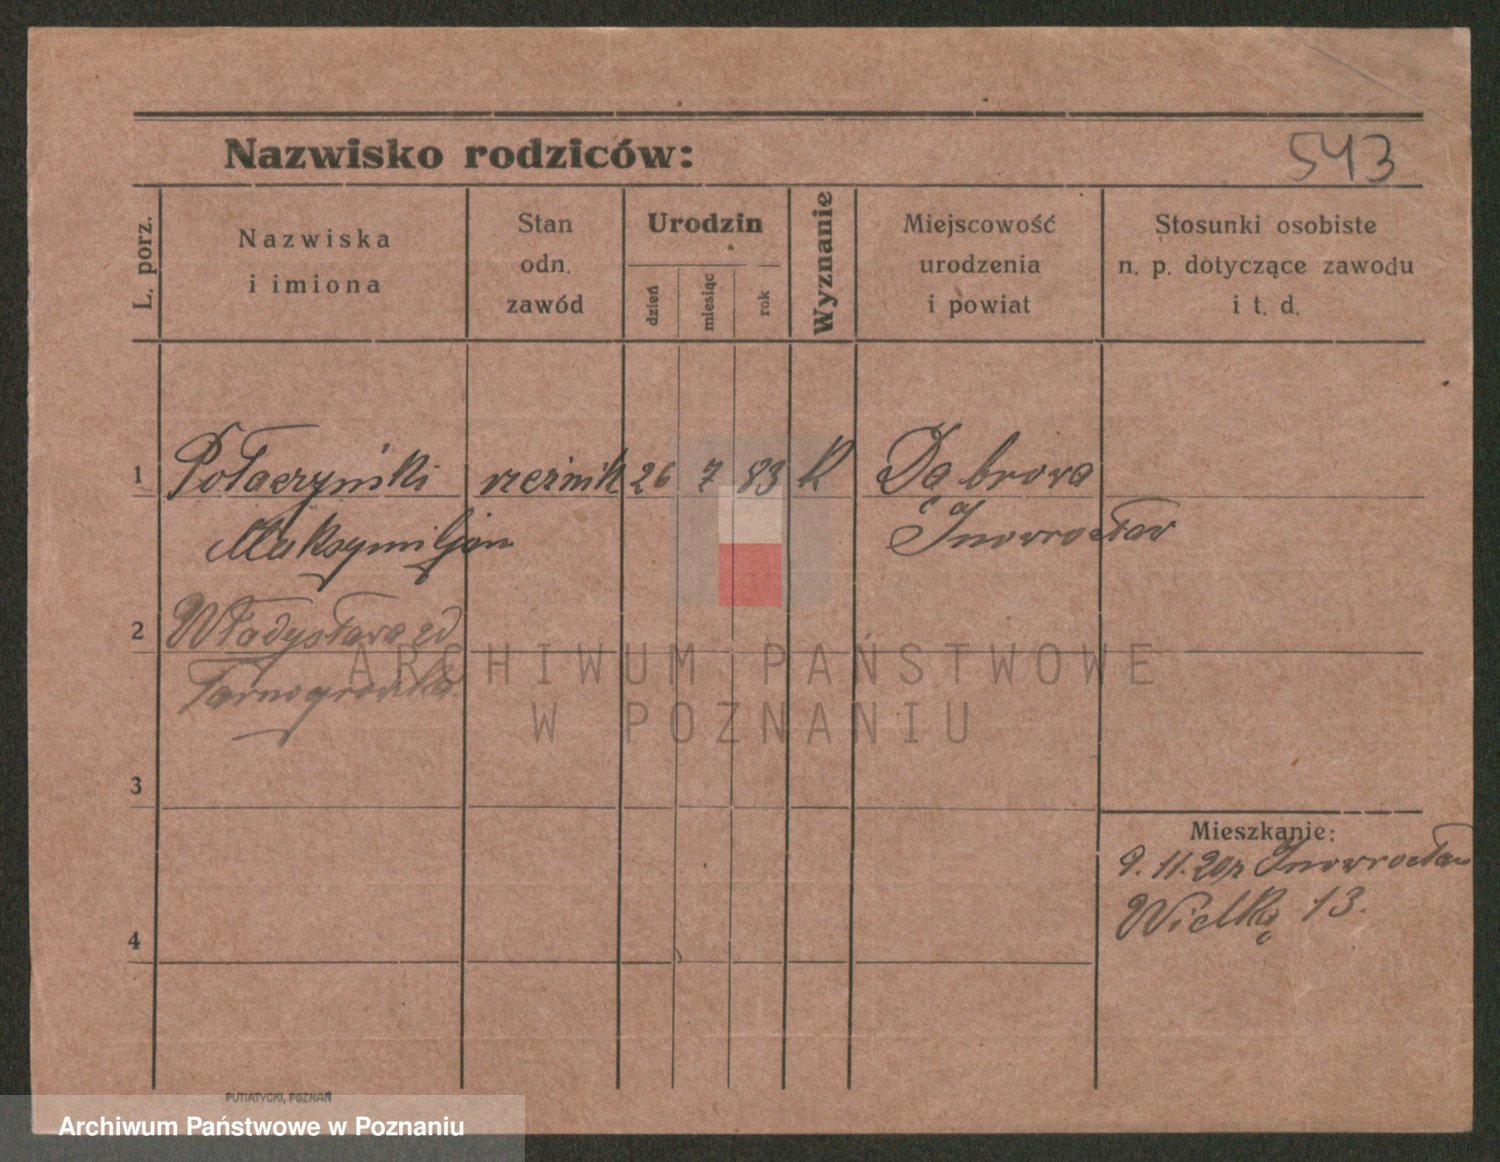 Nazwisko rodziców:
543
L. porz.
Nazwiska
i imiona
Stan
odn.
zawód
Urodzin
dzień
miesiąc
rok
Wyznanie
Miejscowość
urodzenia
i powiat
Stosunki osobiste
n. p. dotyczące zawodu
i t. d.
1 Połaczyński rzeźnik 26 7 83 K Dąbrowa
Maksymiljan Inowrocław
2 Władysława zd
Tarnogrodzka
ARCHIWUM PAŃSTWOWE
W POZNANIU
3
Mieszkanie:
9.11.20 z Inowrocław
Wielka 13.
4
PUTIATYCKI, POZNAŃ
Archiwum Państwowe w Poznaniu